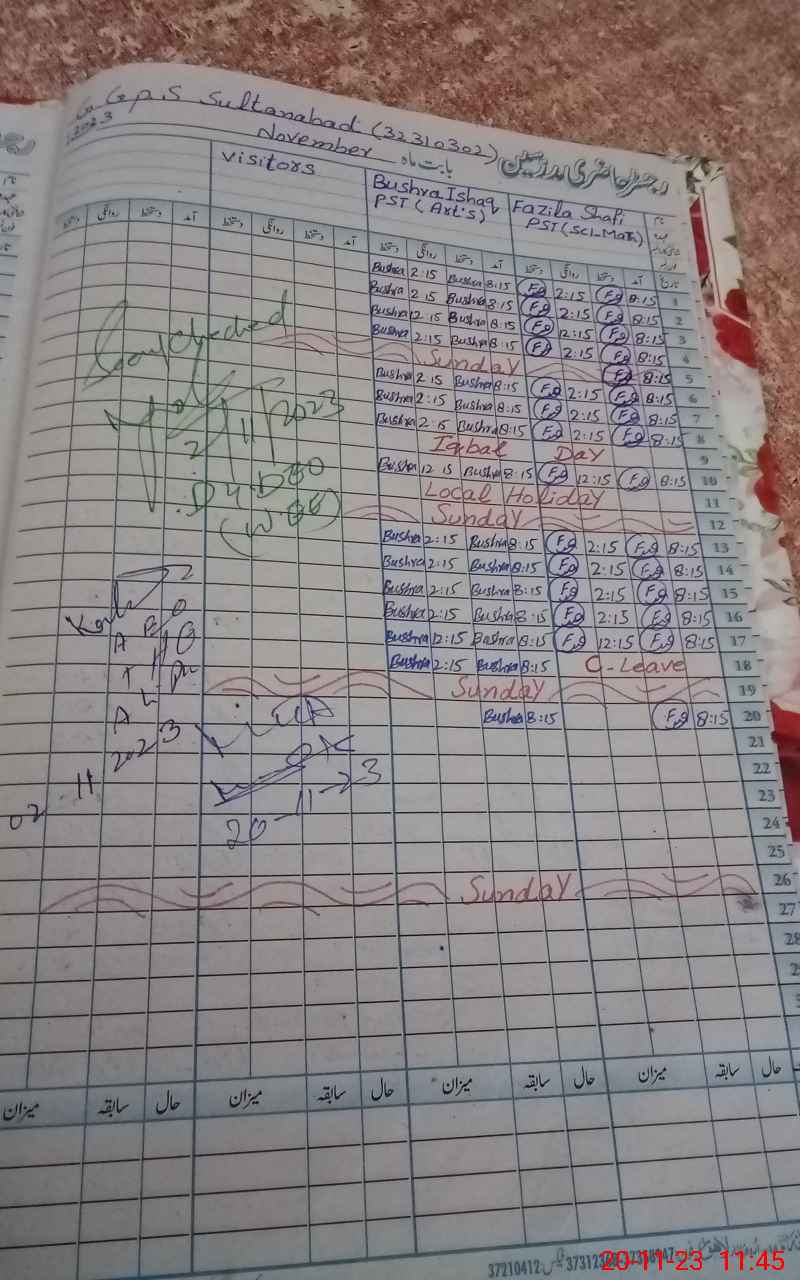 G G P S Sultanabad (32310302) رجسٹر حاضری مدرسین
2023 November بابت ماہ
Visitors
Bushra Ishaq
PST (Art's)
Fazila Shafi
PST (Sci-Math)
دستخط روانگی دستخط آمد دستخط روانگی دستخط آمد دستخط روانگی دستخط آمد دستخط روانگی دستخط آمد تاریخ
Bushra 2:15 Bushra 8:15 F.g 2:15 F.g 8:15 1
Bushra 2:15 Bushra 8:15 F.g 2:15 F.g 8:15 2
Bushra 12:15 Bushra 8:15 F.g 12:15 F.g 8:15 3
Bushra 2:15 Bushra 8:15 F.g 2:15 F.g 8:15 4
Sunday F.g 8:15 5
Bushra 2:15 Bushra 8:15 F.g 2:15 F.g 8:15 6
Bushra 2:15 Bushra 8:15 F.g 2:15 F.g 8:15 7
Bushra 2:15 Bushra 8:15 F.g 2:15 F.g 8:15 8
Iqbal Day 9
Bushra 12:15 Bushra 8:15 F.g 12:15 F.g 8:15 10
Local Holiday 11
Sunday 12
Bushra 2:15 Bushra 8:15 F.g 2:15 F.g 8:15 13
Bushra 2:15 Bushra 8:15 F.g 2:15 F.g 8:15 14
Bushra 2:15 Bushra 8:15 F.g 2:15 F.g 8:15 15
Bushra 2:15 Bushra 8:15 F.g 2:15 F.g 8:15 16
Bushra 12:15 Bushra 8:15 F.g 12:15 F.g 8:15 17
Bushra 2:15 Bushra 8:15 C-Leave 18
Sunday 19
Bushra 8:15 F.g 8:15 20
21
22
23
24
25
Sunday 26
27
28
2/11/2023
Dy. DEO
(W-EE)
A E O
02 11 2023
20-11-23
میزان سابقہ حال میزان سابقہ حال میزان سابقہ حال میزان سابقہ حال
37210412
20-11-23 11:45